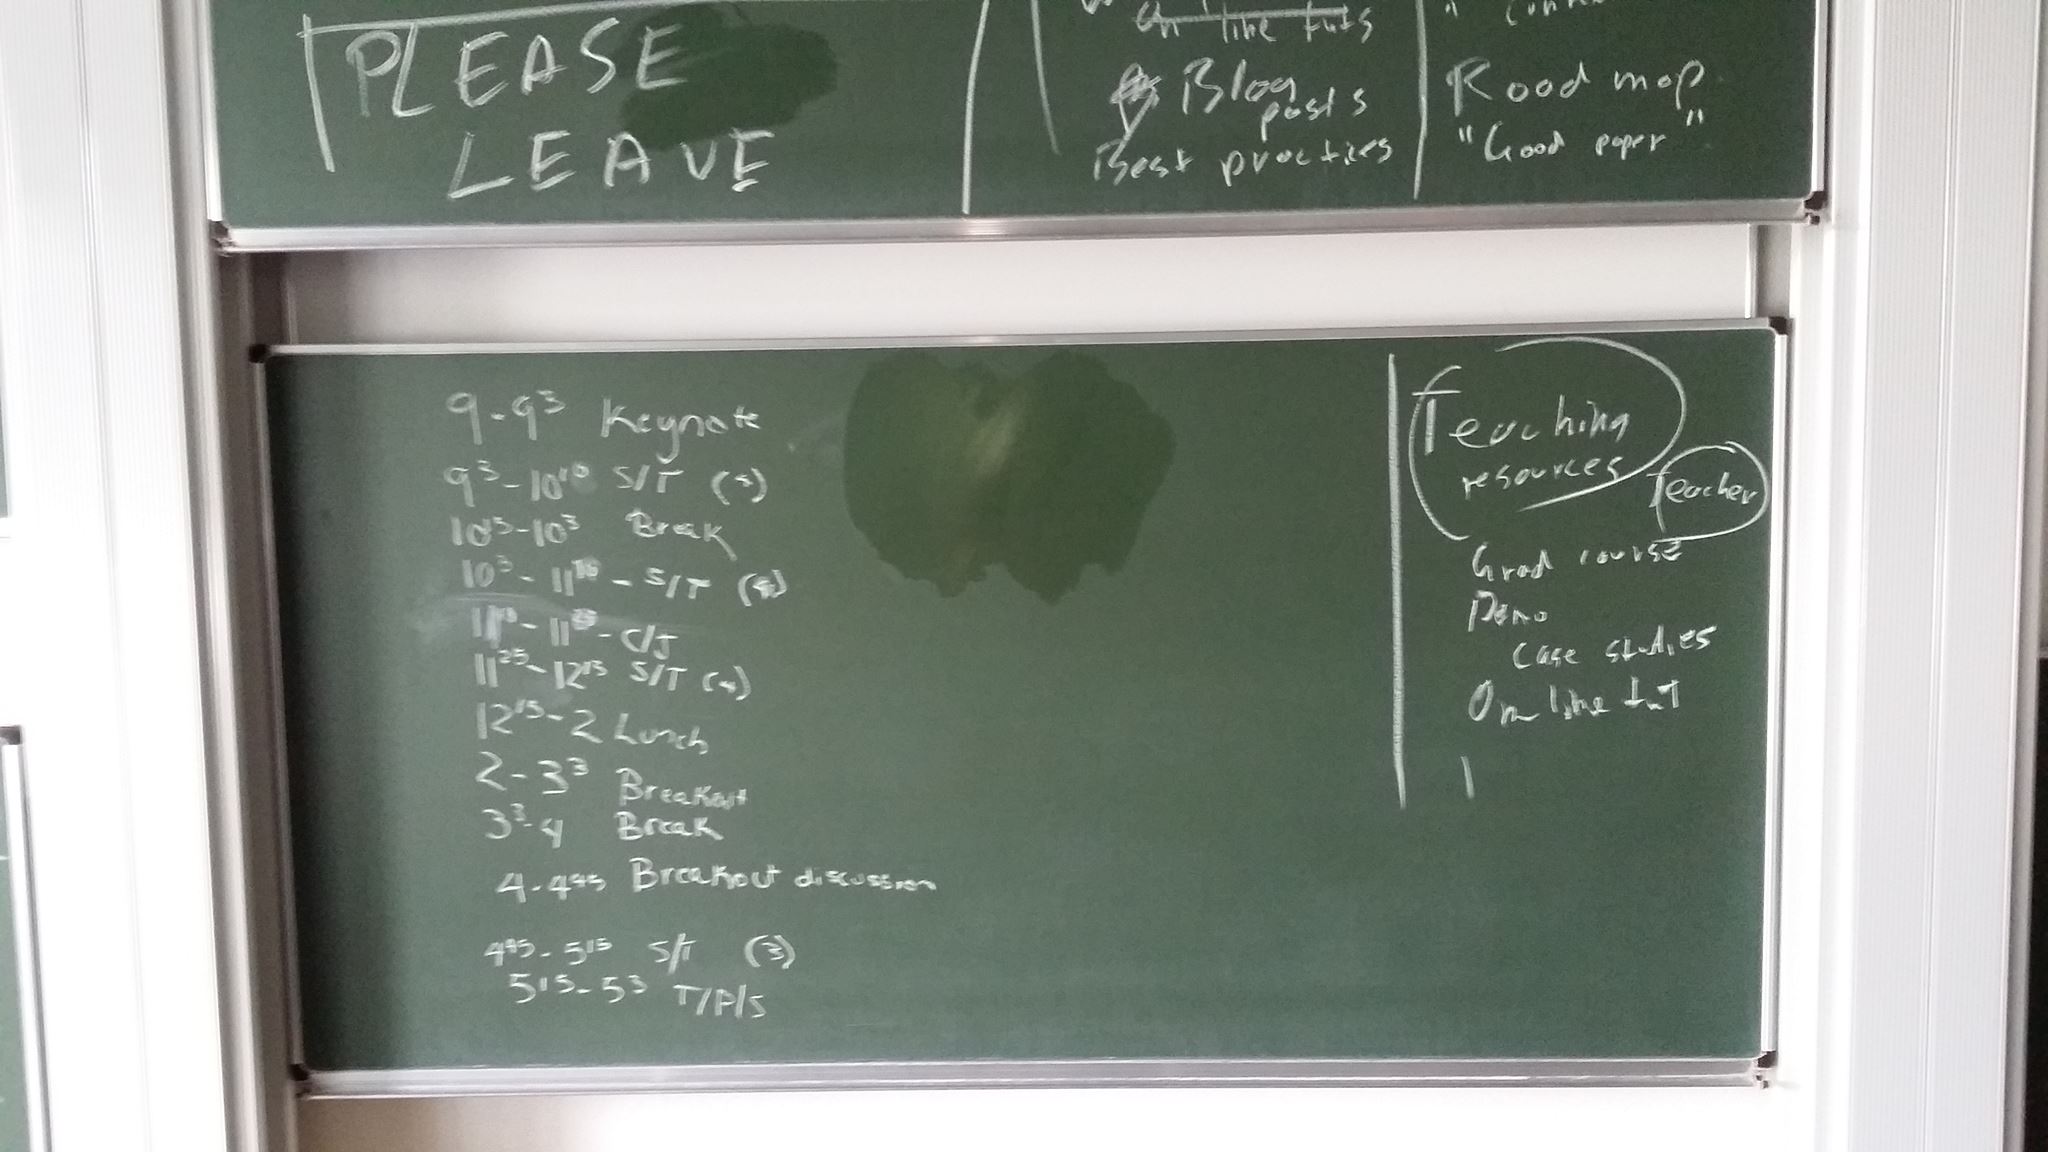 PLEASE
LEAVE
On line tuts
Blog
posts
Best practices
Road map
"Good paper"
9-9³ Keynote
9³-10¹⁰ S/T (4)
10¹⁵-10³ Break
10³-11¹⁰-S/T (4)
C/J
11²⁵-12¹⁵ S/T (4)
12¹⁵-2 Lunch
2-3³ Breakout
3³-4 Break
4-4⁴⁵ Breakout discussion
4⁴⁵-5¹⁵ S/T (3)
5¹⁵-5³ T/P/S
Teaching
resources
Teacher
Grad course
Demo
Case studies
On line tut